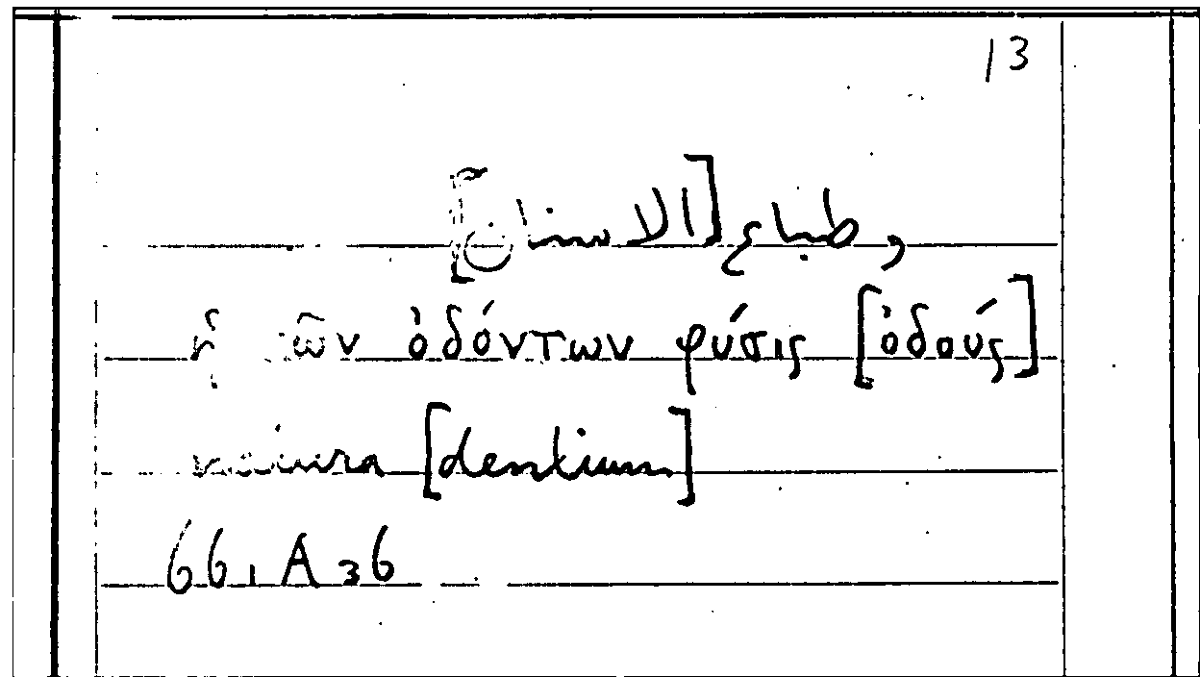 13
وطباع [الاسنان]
ἡ τῶν ὀδόντων φύσις [ὀδούς]
natura [dentium]
66, A 36